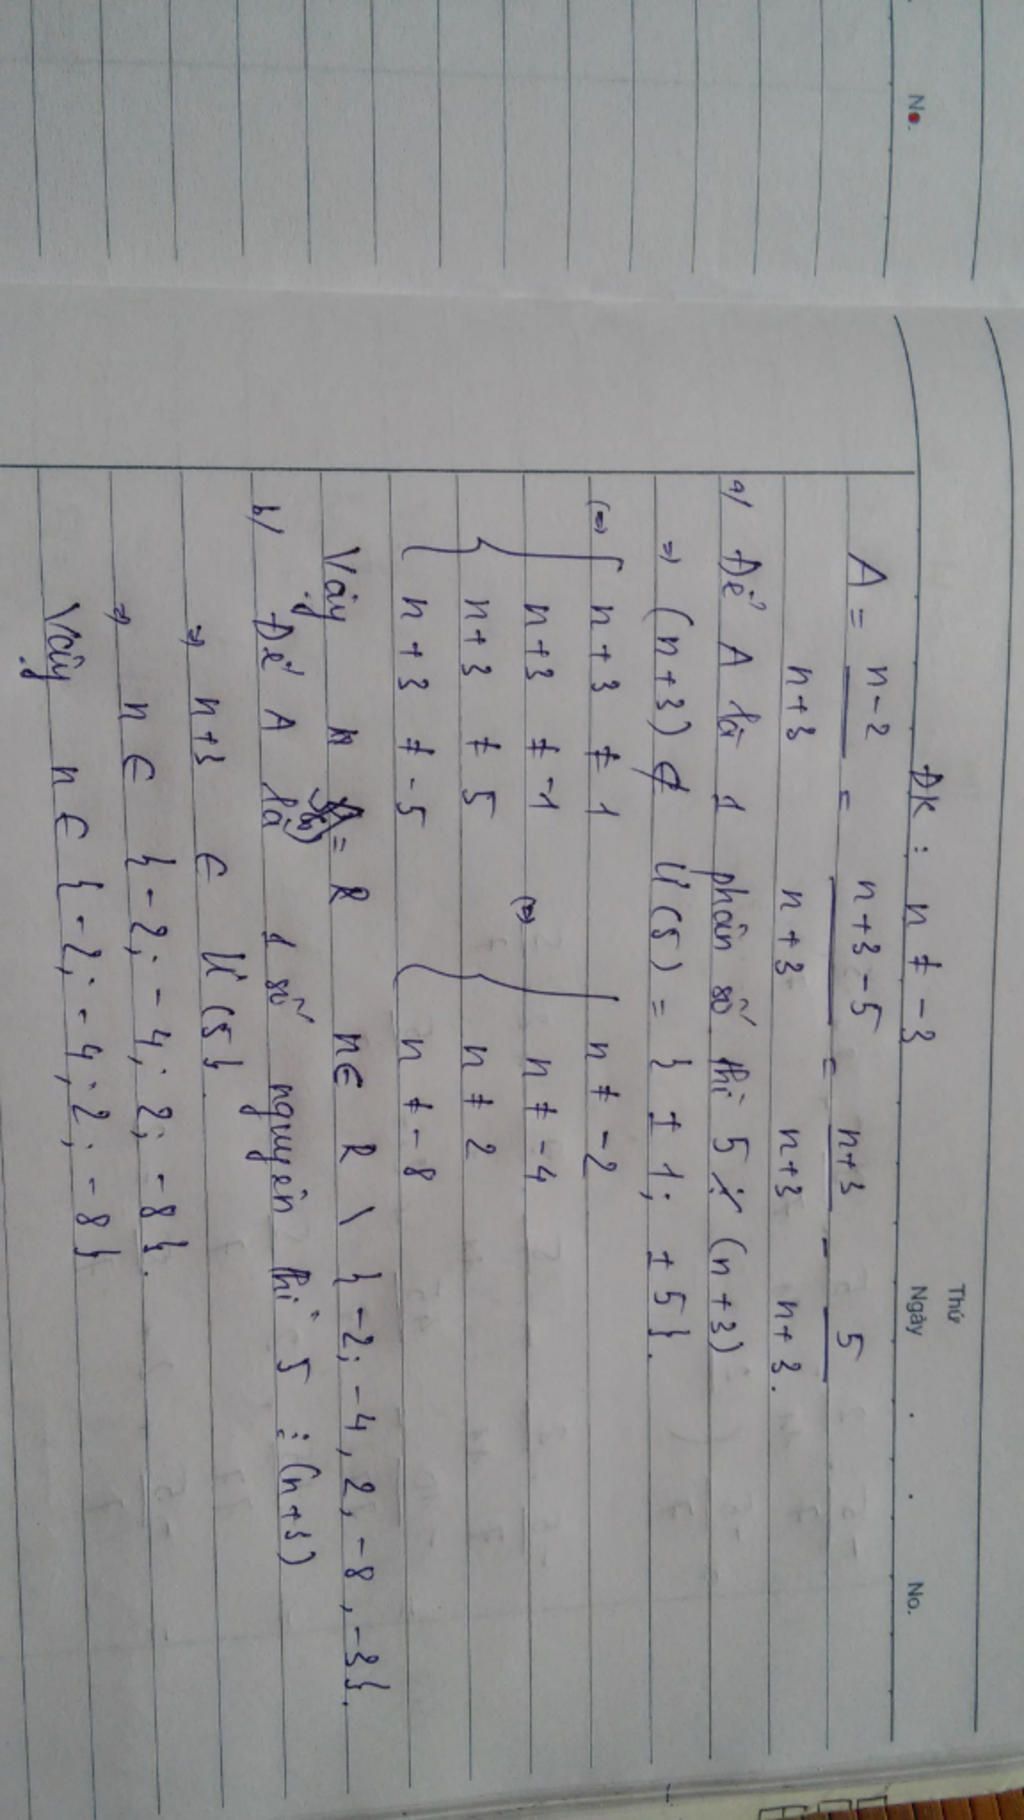 No.
Thứ
Ngày . . No.
ĐK : n ≠ -3
A = n-2 / n+3 = n+3-5 / n+3 = n+3 / n+3 - 5 / n+3.
a/ Để A là 1 phân số thì 5 ⋮̸ (n+3)
⇒ (n+3) ∉ Ư(5) = { ±1; ±5}.
(⇔) { n+3 ≠ 1 { n ≠ -2
n+3 ≠ -1 (⇔) n ≠ -4
n+3 ≠ 5 n ≠ 2
n+3 ≠ -5 n ≠ -8
Vậy = R n∈ R \ { -2; -4, 2, -8, -3}.
b/ Để A là 1 số nguyên thì 5 ⋮ (n+3)
⇒ n+3 ∈ Ư(5}.
⇒ n ∈ { -2; -4; 2; -8}.
Vậy n ∈ { -2; -4; 2; -8}